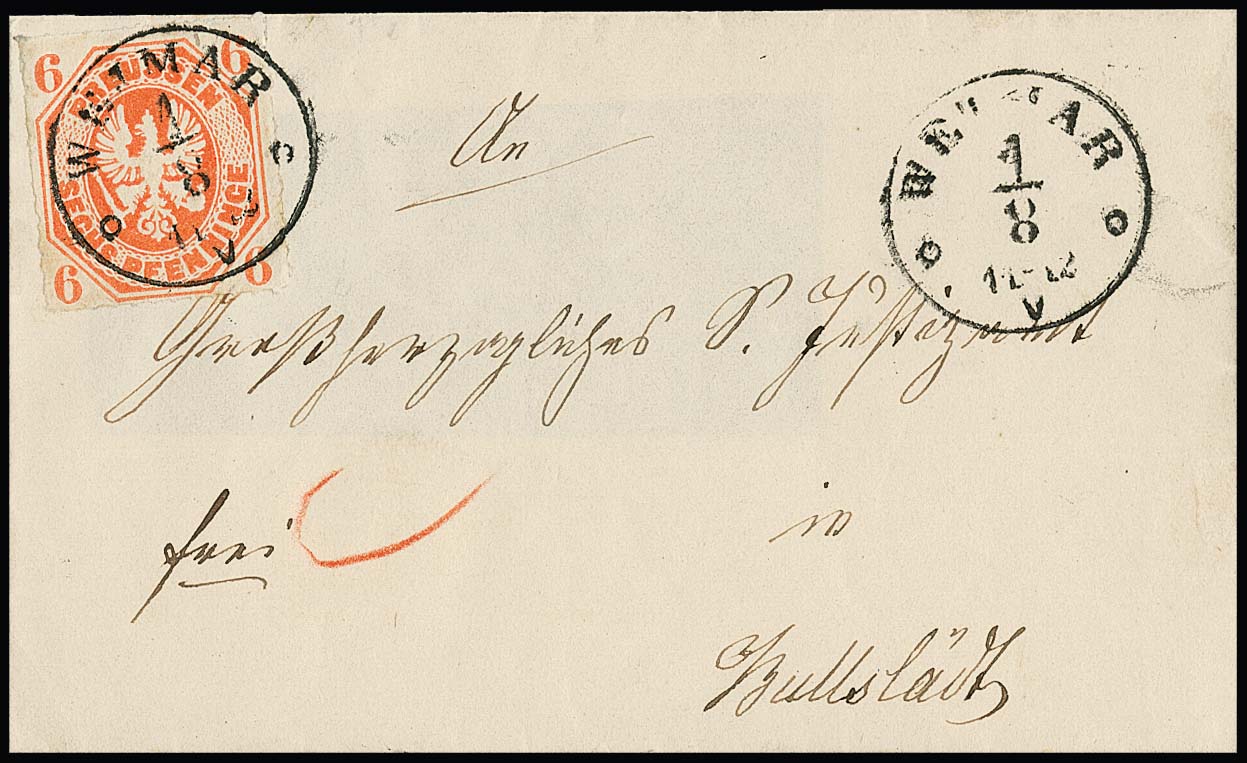 6 6
PREUSSEN
SECHS PFENNINGE
6 6
WEIMAR
1
8
V
WEIMAR
1
8
11-12
V
An
Großherzogliches S. Justizamt
frei
in
Buttstädt